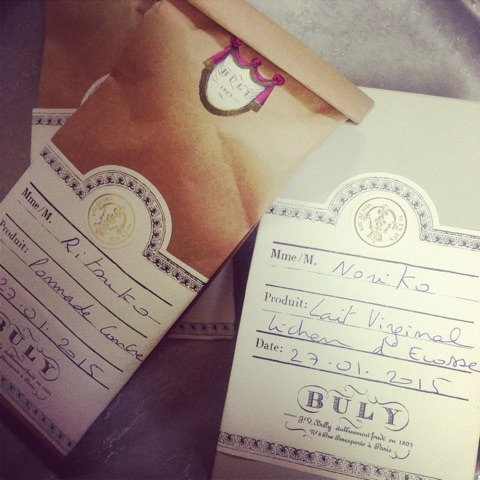 BULY
1803
Mme/M. Ritsuko
Produit: Pommade Concrète
27.01.2015
BULY
Mme/M. Noriko
Produit: Lait Virginal
Lichen d'Ecosse
Date: 27.01.2015
BULY
J.V. Bully établissement fondé en 1803
N° 6 Rue Bonaparte à Paris